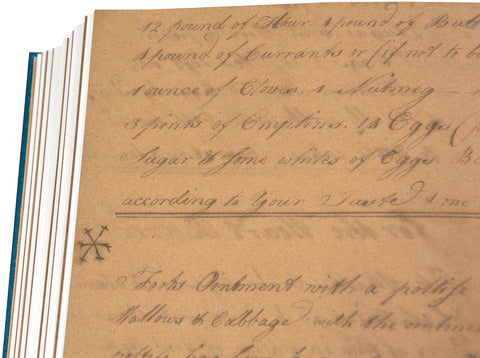 12 pound of flour. 4 pound of
4 pound of Currants or (if not to be
1 ounce of Cloves. 1 Nutmeg –
3 pints of Emptins. 14 Eggs
Sugar & some whites of Eggs.
according to Your
Ointment with a poltise
Mallows & Cabbage with the ointm